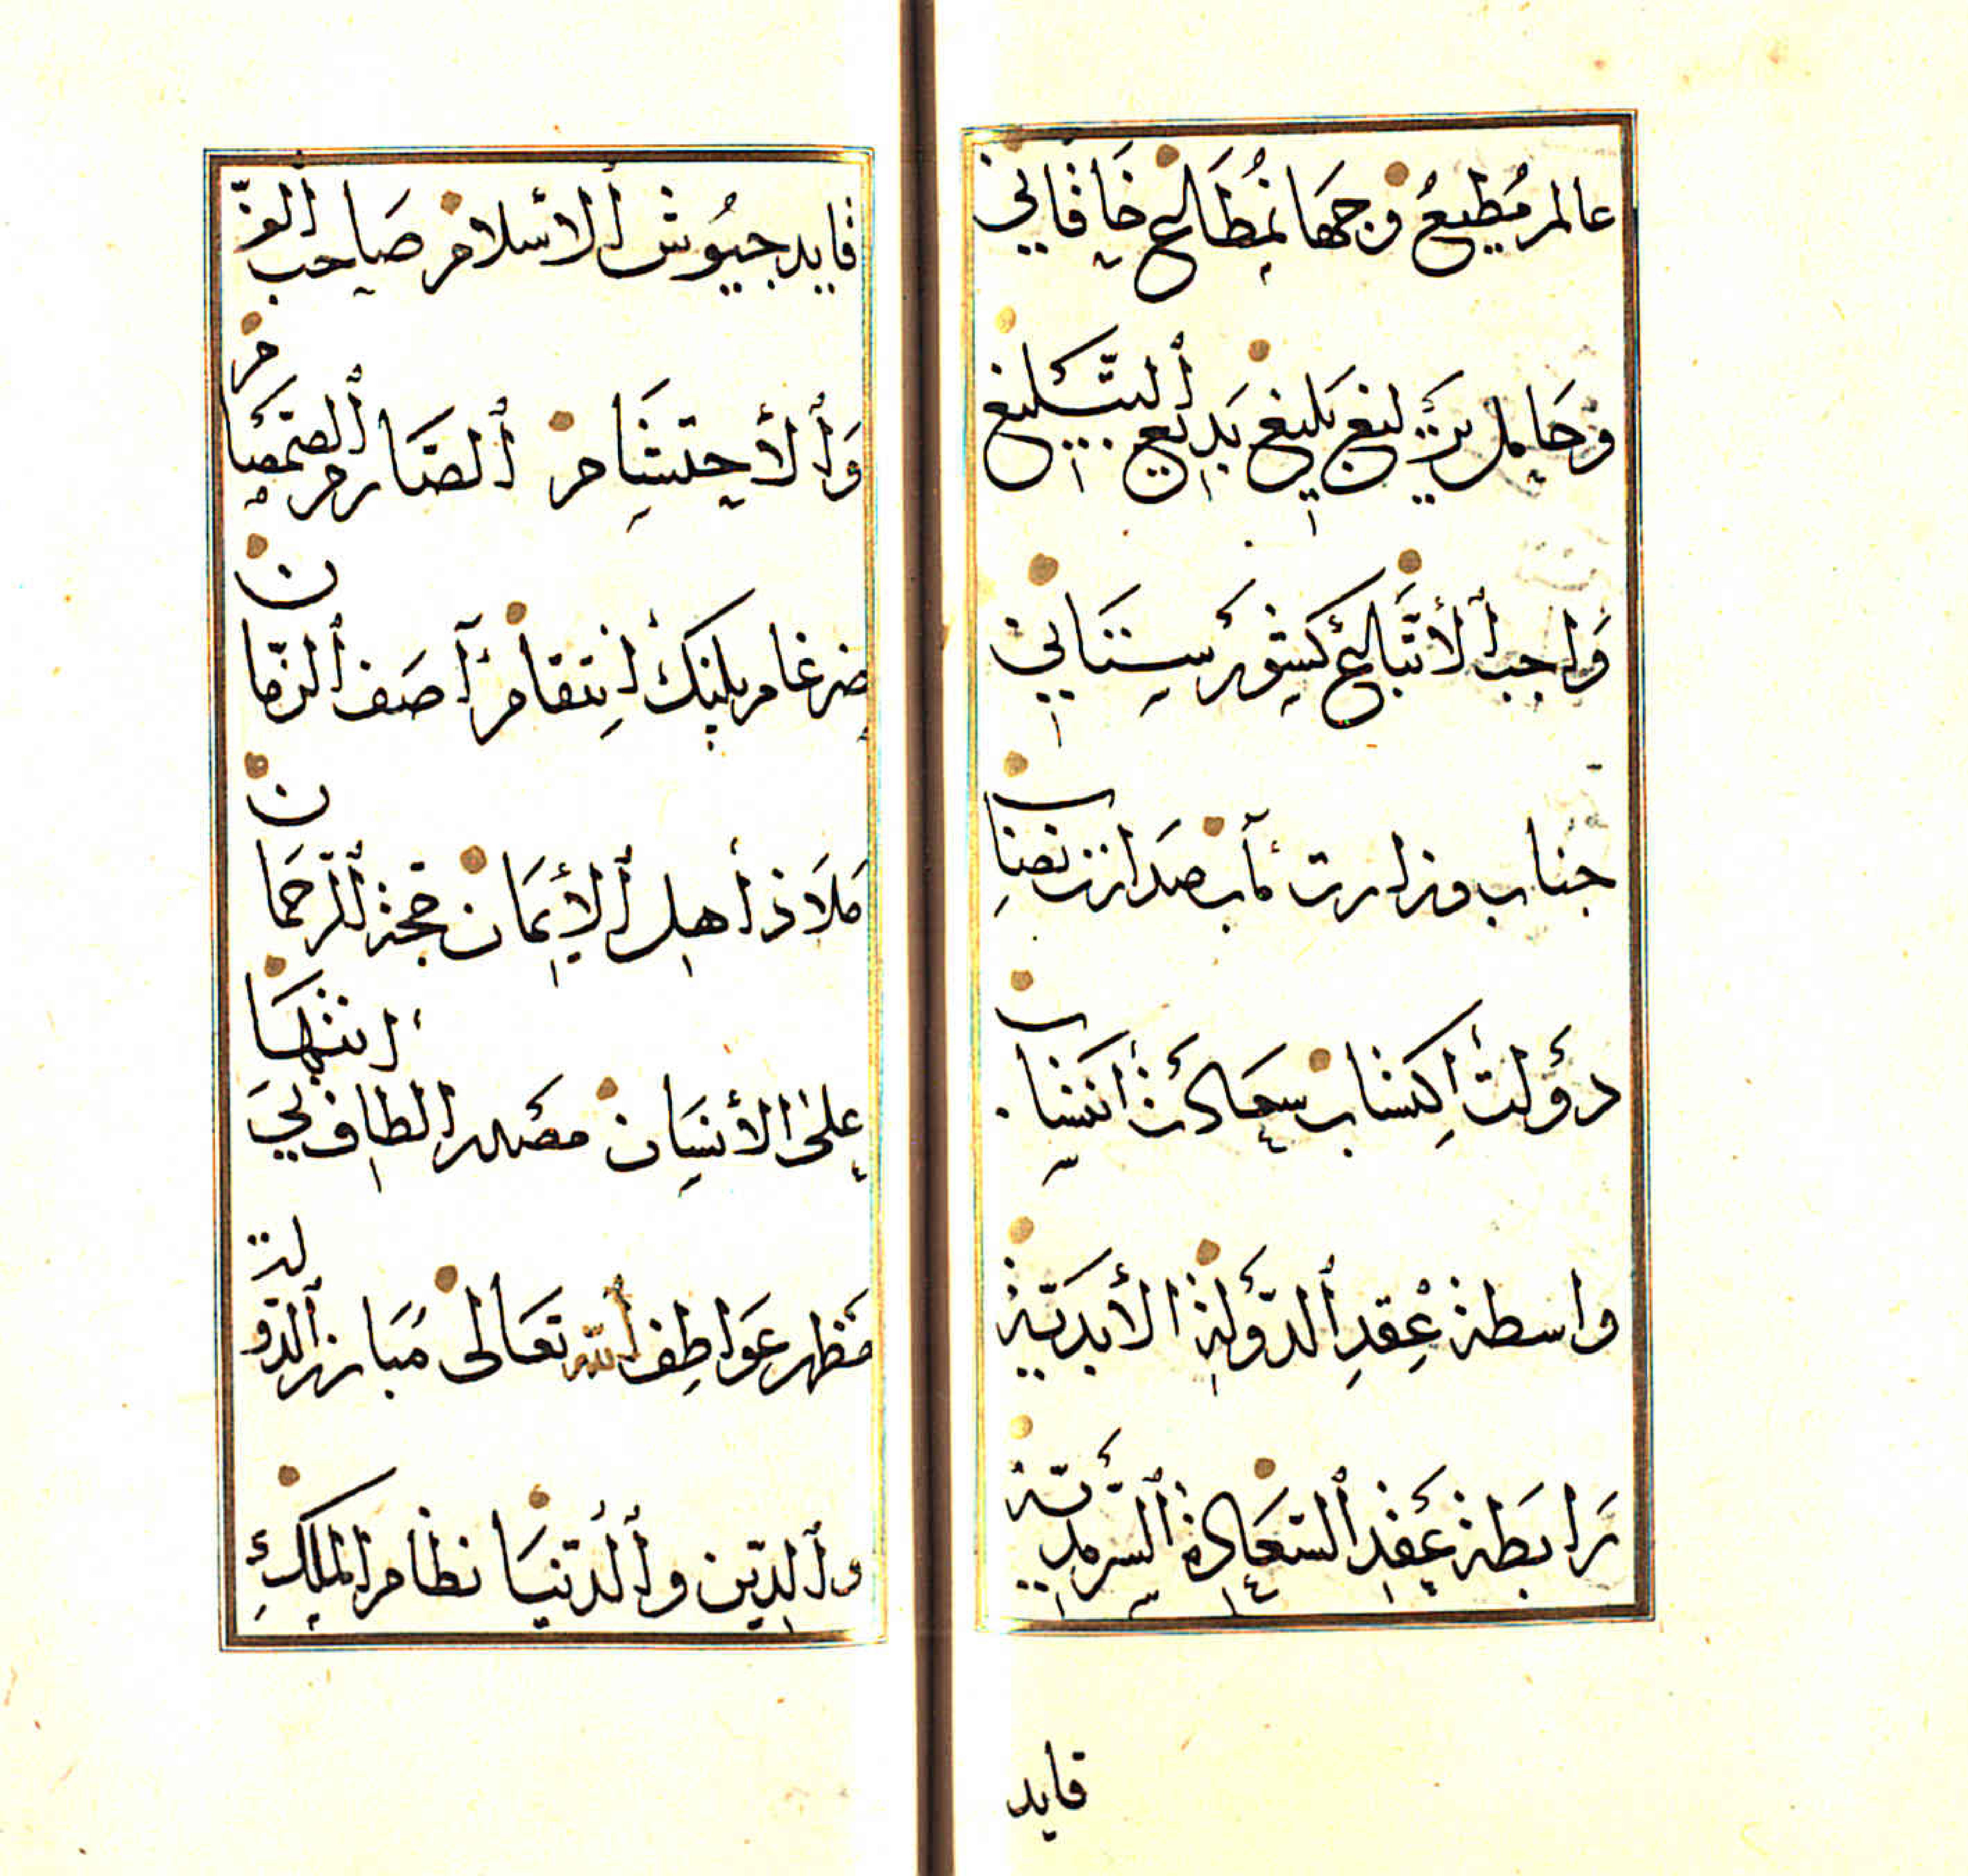 عالم مُطيعُ وجهانمُطَالعِ خَاقَاني
وحَامِل يَرْليغ بَليغ بَديعِ ٱلتَّبْليغ
وَاجب ٱلأتّبَاعِ كَشِوْرسِتَانيْ
جناب وزارت مآب صدارت نصَاب
دوْلتْ إكتسَاب سعَادتْ انتسَاب
واسطة عِقدِ ٱلدّوْلةِ الأبدَيّة
رَابطَة عَقْد ٱلسّعَادة ٱلسّرمَديّة
قايد
قايد جيُوش ٱلاسْلام صَاحب ٱلعزّ
وَٱلأحتشَام ٱلصَّارم ٱلصّمْصَام
ضرغام پلنكْ إنتقام آصَف ٱلزّمان
مَلاَذ أهل ٱلأيمَان حجّة ٱلرّحمَان
على الأنسَان مصْدر الطاف بيَ انتهَا
مَظهر عَواطِف ٱللّه تعَالى مُبَارز ٱلدّولة
وٱلدِّين وٱلدّنيَا نظَام ٱلملْكِ